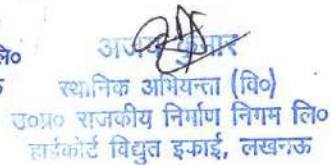 लि०
अजय कुमार
स्थानिक अभियन्ता (वि०)
उ०प्र० राजकीय निर्माण निगम लि०
हाईकोर्ट विद्युत इकाई, लखनऊ